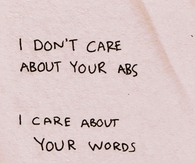 I DON'T CARE
ABOUT YOUR ABS
I CARE ABOUT
YOUR WORDS